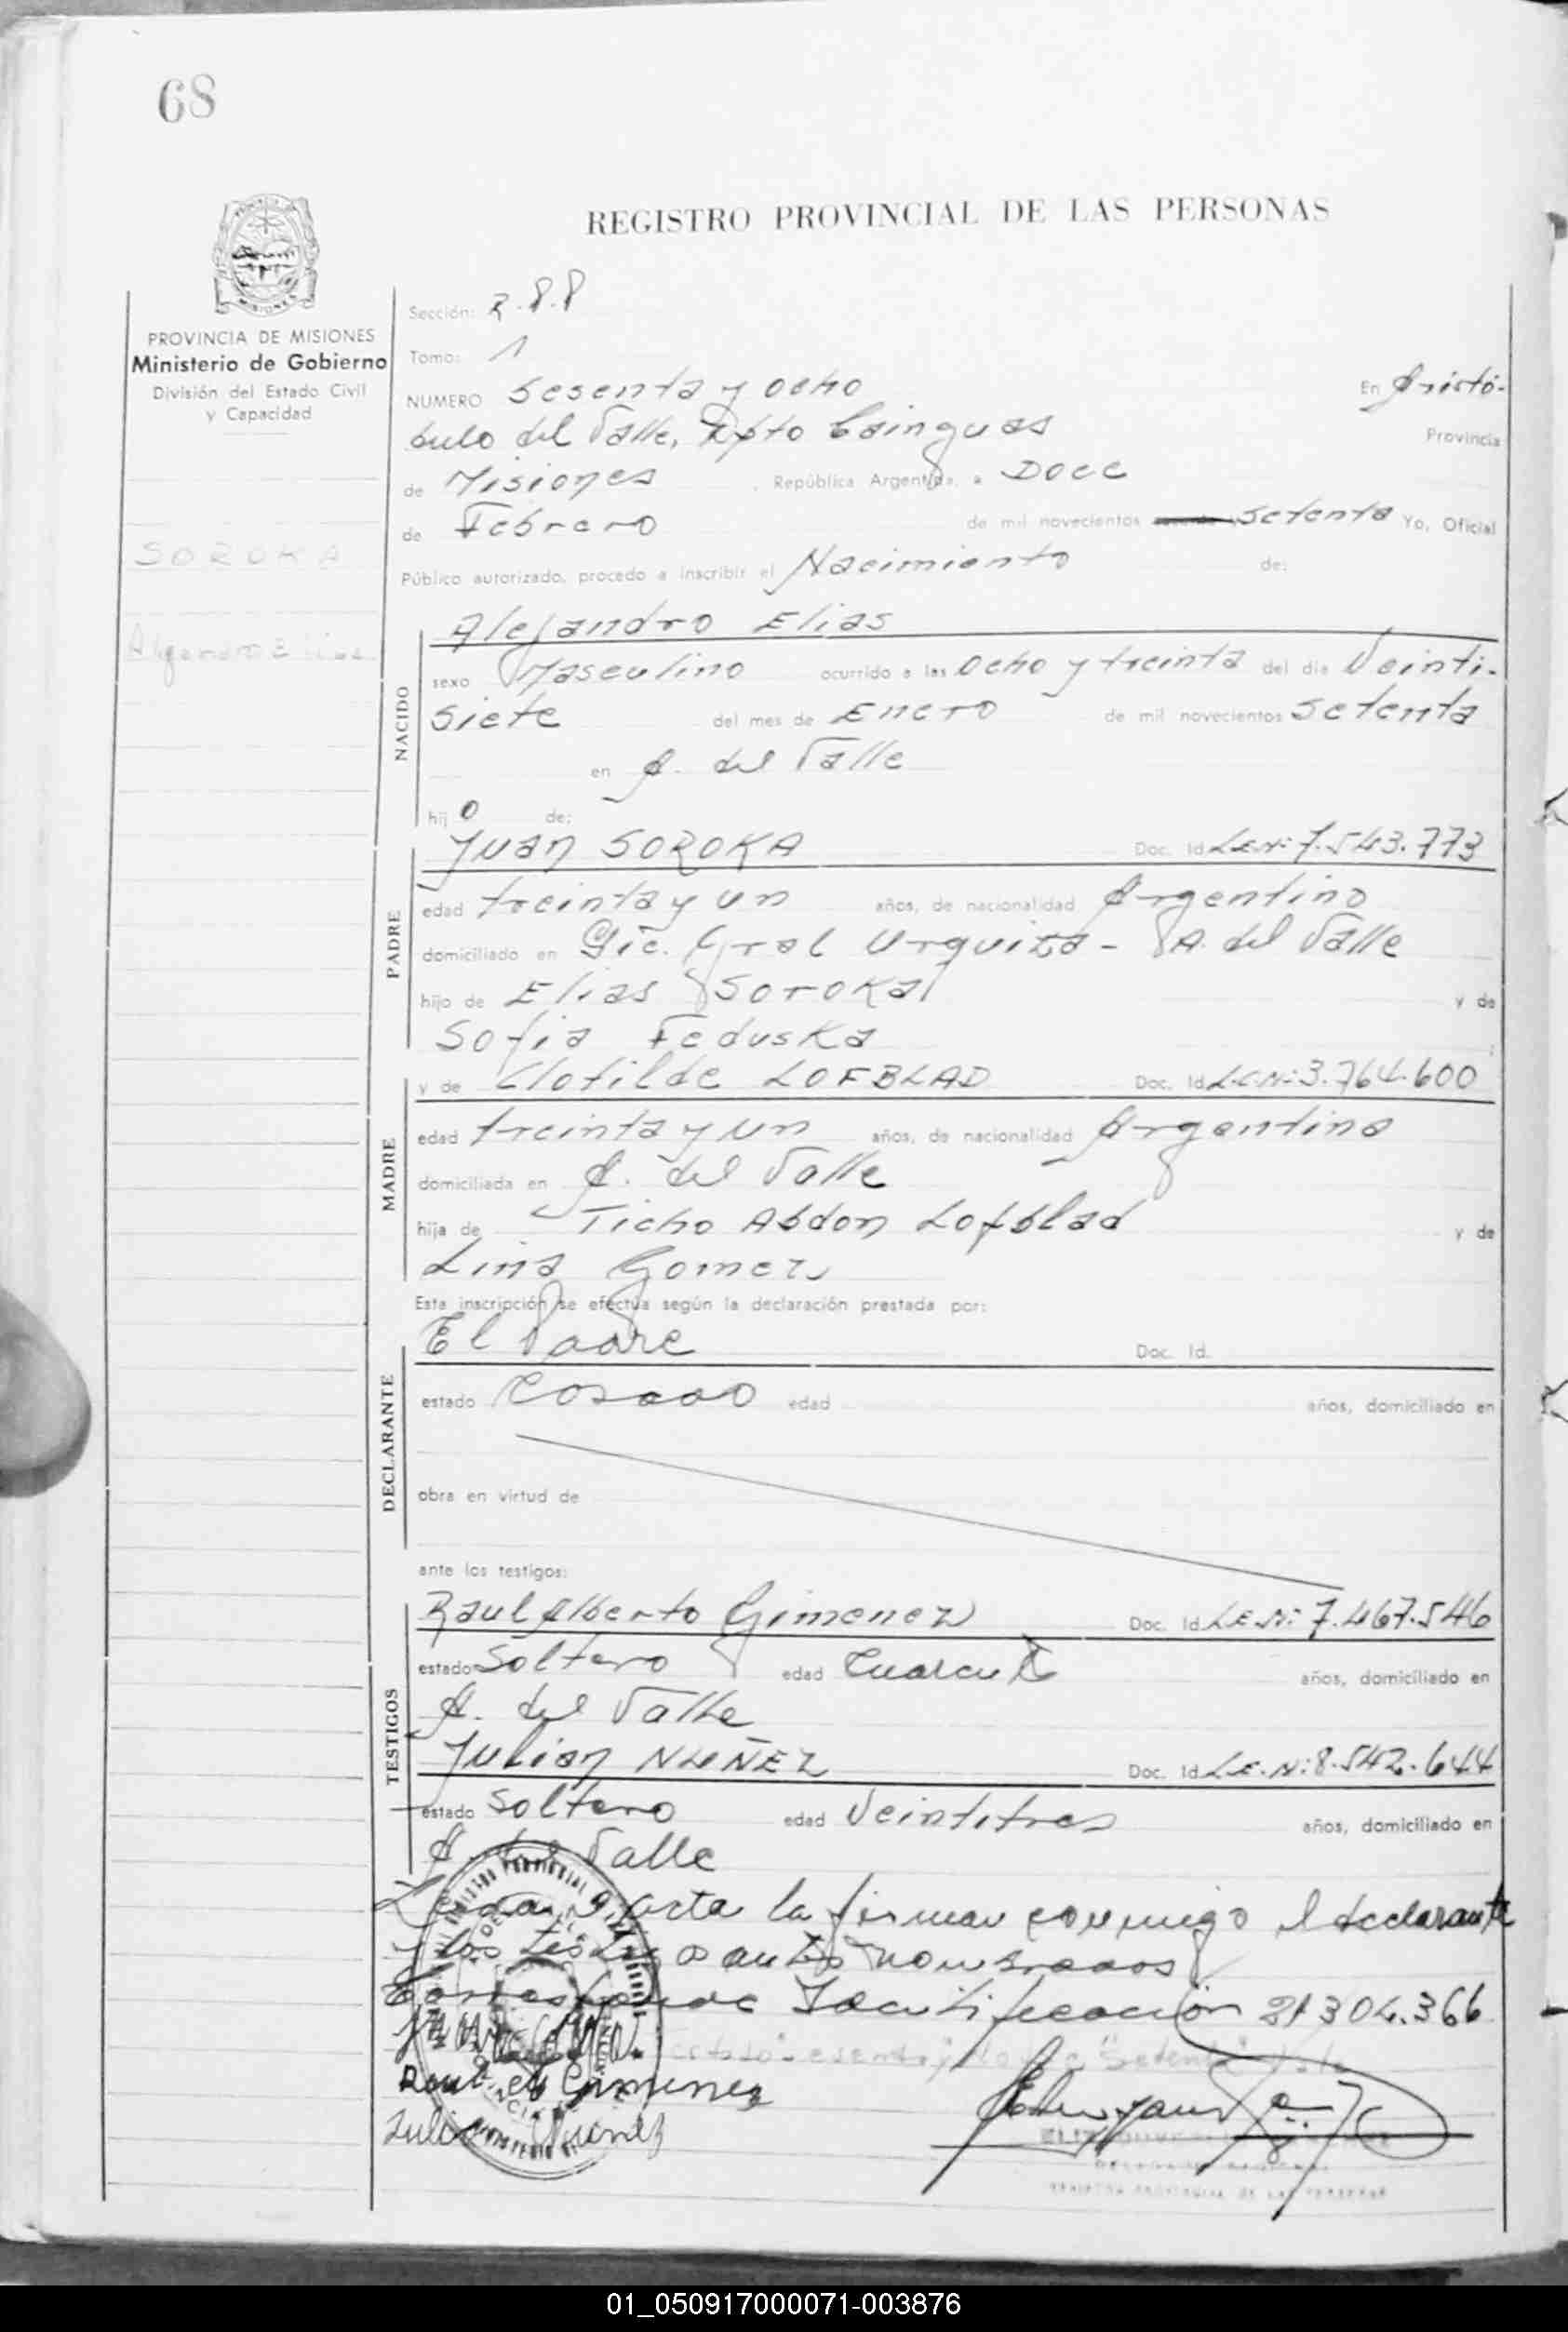 68
REGISTRO PROVINCIAL DE LAS PERSONAS
MISIONES
PROVINCIA DE MISIONES
Ministerio de Gobierno
División del Estado Civil
y Capacidad
SOROKA
Alejandro Elias
Sección: R.P.P
Tomo: 1
NUMERO Sesenta y ocho En Aristó-
bulo del Valle, Dpto Cainguas Provincia
de Misiones, República Argentina, a Doce
de Febrero de mil novecientos setenta Yo, Oficial
Público autorizado, procedo a inscribir el Nacimiento de:
NACIDO
Alejandro Elias
sexo Masculino ocurrido a las Ocho y treinta del día Veinti-
siete del mes de Enero de mil novecientos setenta
en A. del Valle
hijo de:
PADRE
Juan SOROKA Doc. Id L.E.Nº 7.543.773
edad treinta y un años, de nacionalidad Argentino
domiciliado en Pic. Gral Urquiza - A. del Valle
hijo de Elias Soroka y de
Sofia Feduska ;
MADRE
y de Clotilde LOFBLAD Doc. Id L.C.Nº 3.764.600
edad treinta y un años, de nacionalidad Argentina
domiciliada en A. del Valle
hija de Ticho Abdon Lofblad y de
Lina Gomez
Esta inscripción se efectúa según la declaración prestada por:
DECLARANTE
El Padre Doc. Id.
estado Casado edad años, domiciliado en
obra en virtud de
ante los testigos:
TESTIGOS
Raul Alberto Gimenez Doc. Id L.E.Nº 7.467.546
estado Soltero edad Cuarenta años, domiciliado en
A. del Valle
Julian NUÑEZ Doc. Id L.E.Nº 8.542.644
estado Soltero edad Veintitres años, domiciliado en
A. del Valle
Leida el acta la firman conmigo el declarante
y los testigos antes nombrados
Corresponde Identificación 21304.366
Raul A Gimenez
Julian Nunez
REGISTRO PROVINCIAL DE LAS PERSONAS
01_050917000071-003876